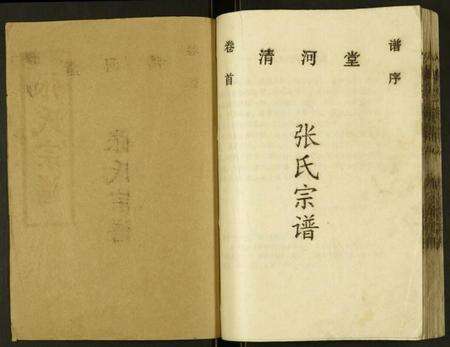 谱序
清河堂
卷首
张氏宗谱